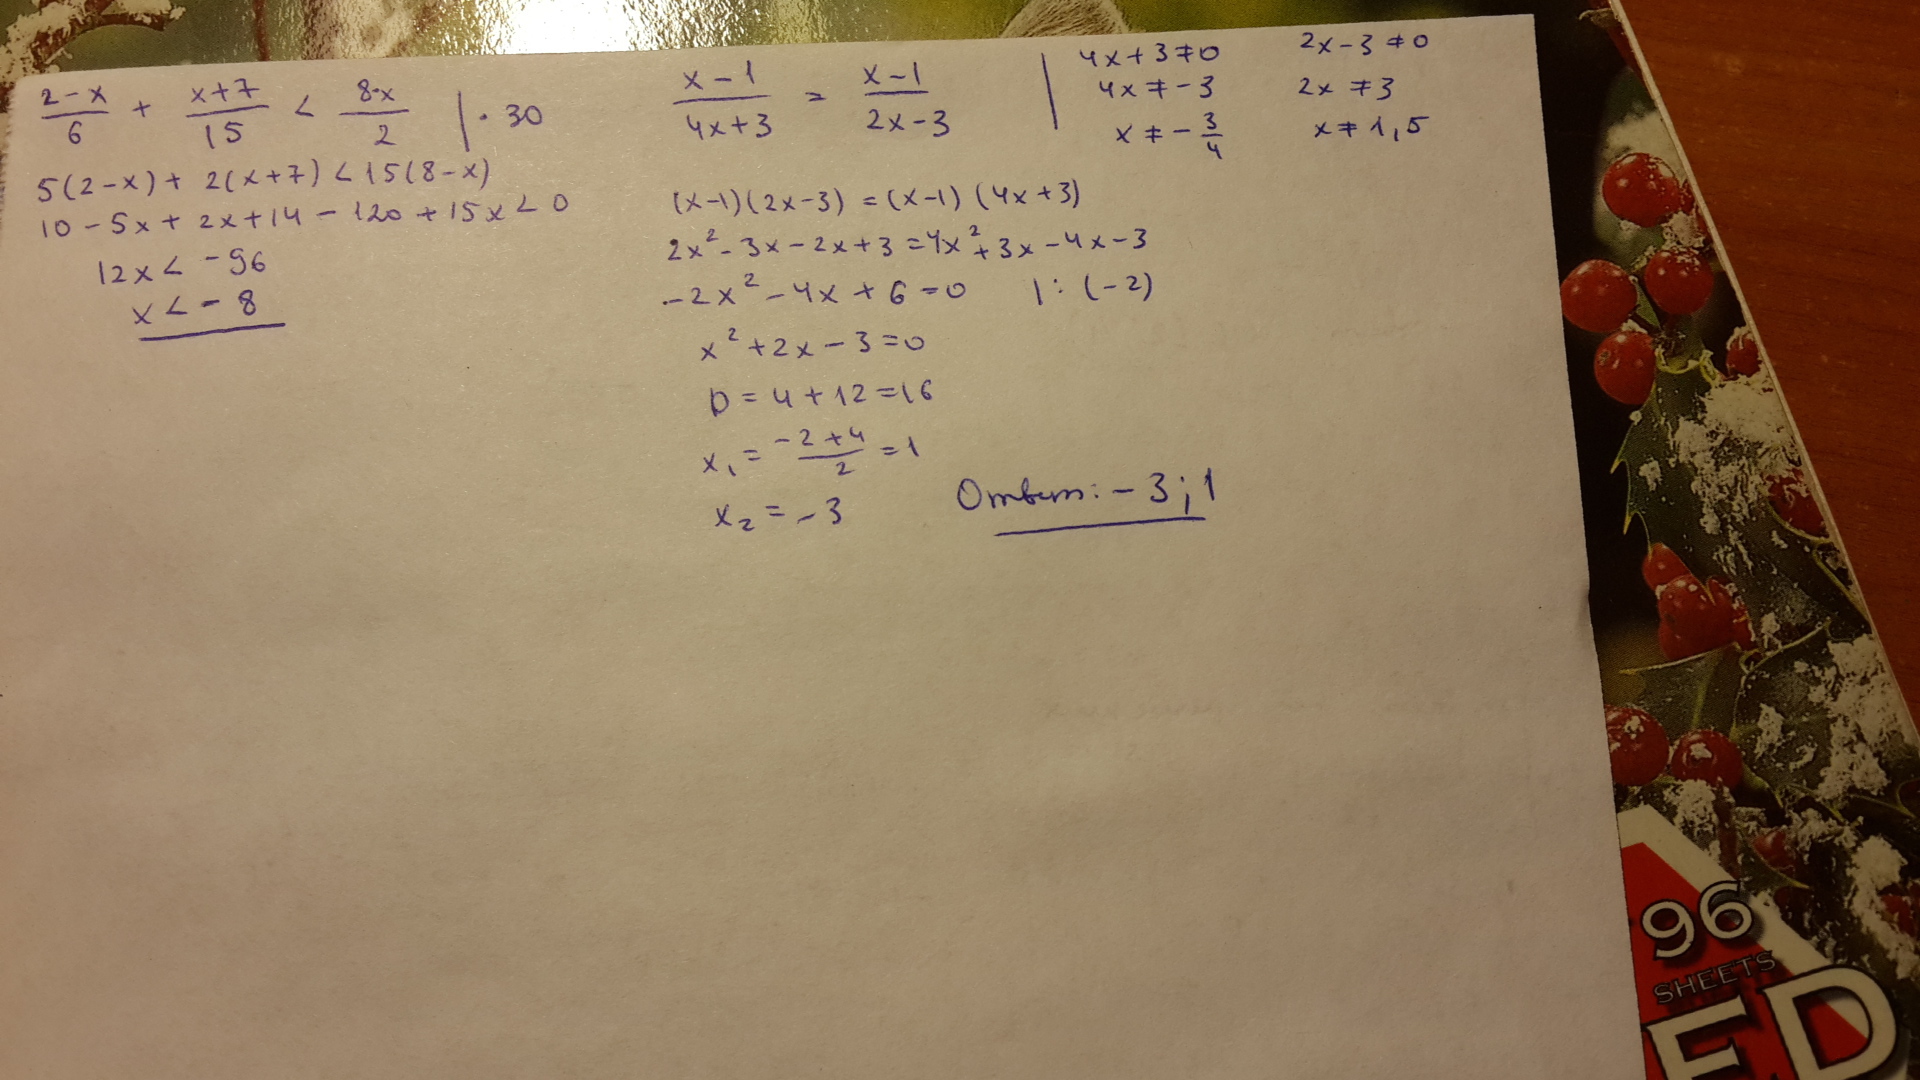 (2-x)/6 + (x+7)/15 < (8-x)/2 | · 30
5(2-x) + 2(x+7) < 15(8-x)
10 - 5x + 2x + 14 - 120 + 15x < 0
12x < -96
x < - 8
(x-1)/(4x+3) = (x-1)/(2x-3) | 4x+3≠0 2x-3≠0
4x≠-3 2x≠3
x≠-3/4 x≠1,5
(x-1)(2x-3) = (x-1)(4x+3)
2x²-3x-2x+3=4x²+3x-4x-3
-2x²-4x+6=0 |:(-2)
x²+2x-3=0
D=4+12=16
x₁=(-2+4)/2=1
x₂=-3
Ответ: -3;1
96
SHEETS
ED